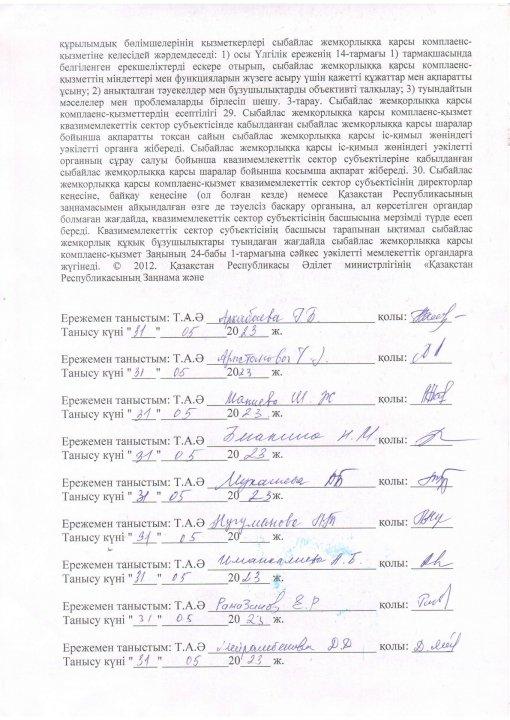 құрылымдық бөлімшелерінің қызметкерлері сыбайлас жемқорлыққа қарсы комплаенс-
қызметіне келесідей жәрдемдеседі: 1) осы Үлгілік ереженің 14-тармағы 1) тармақшасында
белгіленген ерекшеліктерді ескере отырып, сыбайлас жемқорлыққа қарсы комплаенс-
қызметтің міндеттері мен функцияларын жүзеге асыру үшін қажетті құжаттар мен ақпаратты
ұсыну; 2) анықталған тәуекелдер мен бұзушылықтарды объективті талқылау; 3) туындайтын
мәселелер мен проблемаларды бірлесіп шешу. 3-тарау. Сыбайлас жемқорлыққа қарсы
комплаенс-қызметтердің есептілігі 29. Сыбайлас жемқорлыққа қарсы комплаенс-қызмет
квазимемлекеттік сектор субъектісінде қабылданған сыбайлас жемқорлыққа қарсы шаралар
бойынша ақпаратты тоқсан сайын сыбайлас жемқорлыққа қарсы іс-қимыл жөніндегі
уәкілетті органға жібереді. Сыбайлас жемқорлыққа қарсы іс-қимыл жөніндегі уәкілетті
органның сұрау салуы бойынша квазимемлекеттік сектор субъектілеріне қабылданған
сыбайлас жемқорлыққа қарсы шаралар бойынша қосымша ақпарат жібереді. 30. Сыбайлас
жемқорлыққа қарсы комплаенс-қызмет квазимемлекеттік сектор субъектісінің директорлар
кеңесіне, байқау кеңесіне (ол болған кезде) немесе Қазақстан Республикасының
заңнамасымен айқындалған өзге де тәуелсіз басқару органына, ал көрсетілген органдар
болмаған жағдайда, квазимемлекеттік сектор субъектісінің басшысына мерзімді түрде есеп
береді. Квазимемлекеттік сектор субъектісінің басшысы тарапынан ықтимал сыбайлас
жемқорлық құқық бұзушылықтары туындаған жағдайда сыбайлас жемқорлыққа қарсы
комплаенс-қызмет Заңының 24-бабы 1-тармағына сәйкес уәкілетті мемлекеттік органдарға
жүгінеді. © 2012. Қазақстан Республикасы Әділет министрлігінің «Қазақстан
Республикасының Заңнама және
Ережемен таныстым: Т.А.Ә қолы:
Танысу күні "31" 05 2023 ж.
Ережемен таныстым: Т.А.Ә қолы:
Танысу күні "31" 05 2023 ж.
Ережемен таныстым: Т.А.Ә Мапиева Ш Ж қолы:
Танысу күні "31" 05 2023 ж.
Ережемен таныстым: Т.А.Ә қолы:
Танысу күні "31" 05 2023 ж.
Ережемен таныстым: Т.А.Ә Мукашева қолы:
Танысу күні "31" 05 2023 ж.
Ережемен таныстым: Т.А.Ә Нугуманова қолы:
Танысу күні "31" 05 20 ж.
Ережемен таныстым: Т.А.Ә Иманкалиева А.Б. қолы:
Танысу күні "31" 05 2023 ж.
Ережемен таныстым: Т.А.Ә Рамазанов Е.Р қолы:
Танысу күні "31" 05 2023 ж.
Ережемен таныстым: Т.А.Ә Мейрамбекова Д.Д қолы:
Танысу күні "31" 05 2023 ж.